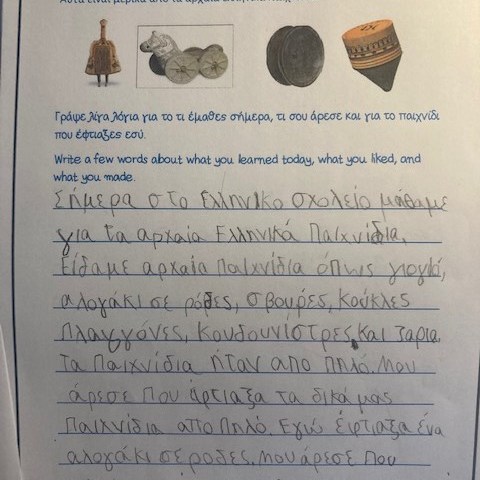 Γράψε λίγα λόγια για το τι έμαθες σήμερα, τι σου άρεσε και για το παιχνίδι
που έφτιαξες εσύ.
Write a few words about what you learned today, what you liked, and
what you made.
Σήμερα στο Ελληνικο σχολείο μάθαμε
για τα αρχαία Ελληνικά Παιχνίδια.
Είδαμε αρχαία Παιχνίδια όπως γιογιό,
αλογάκι σε ρόδες, σβούρες, Κούκλες
Πλαγγόνες, Κουδουνίστρες και ζάρια.
Τα Παιχνίδια ήταν απο πηλό. Μου
άρεσε Που άρτιαξα τα δικά μας
Παιχνίδια απο Πηλό. Εγώ έφτιαξα ένα
αλογάκι σε ροδες. Μου άρεσε Που